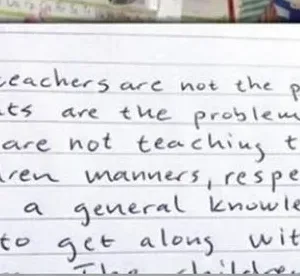 teachers are not the p
ts are the problem
are not teaching t
ren manners, respe
a general knowle
to get along wit